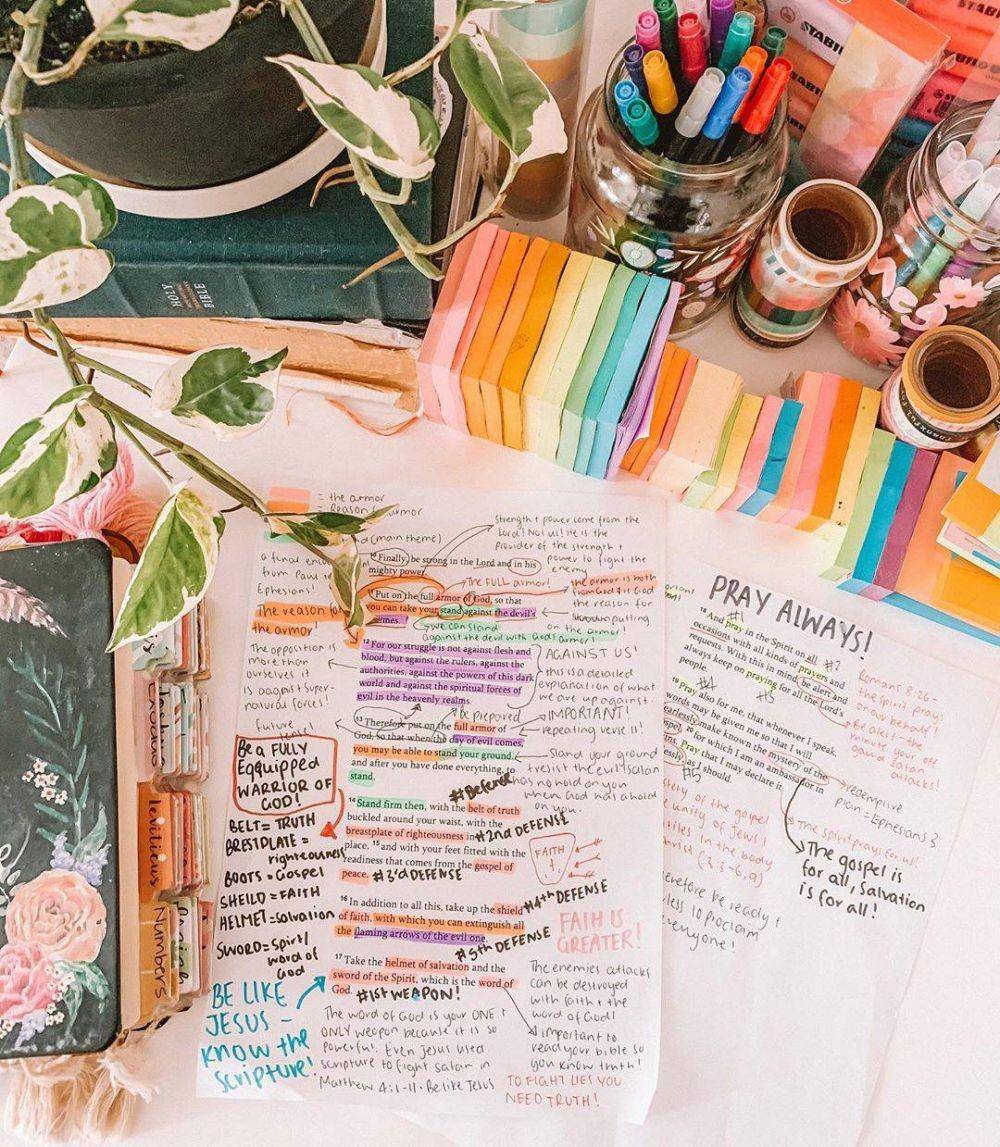 STABIL
STABILO
HOLY
BIBLE
Exodus
Leviticus
Numbers
= the armor
= Reason for armor
(main theme)
a final
from Paul
Ephesians!
10 Finally, be strong in the Lord and in his
mighty power.
Strength + power come from the
Lord! Not us! He is the
provider of the strength +
power to fight the
enemy
The FULL armor!
the armor is both
from God + is God
the reason for
putting
on the armor
The reason for
the armor!
Put on the full armor of God, so that
you can take your stand against the devil's
we can stand
against the devil with God's armor!
The opposition is
more than
ourselves it
is against super-
natural forces!
12 For our struggle is not against flesh and
blood, but against the rulers, against the
authorities, against the powers of this dark
world and against the spiritual forces of
evil in the heavenly realms.
AGAINST US!
this is a detailed
explanation of what
we are up against
be prepared
IMPORTANT!
repeating verse 11!
Future
13 Therefore put on the full armor of
God, so that when the day of evil comes,
you may be able to stand your ground,
and after you have done everything, to
stand.
Stand your ground
+ resist the evil! Satan
has no hold on you
when God has a hold
on you.
Be a FULLY
Equipped
WARRIOR OF
GOD!
14 Stand firm then, with the belt of truth
buckled around your waist, with the
breastplate of righteousness in
place, 15 and with your feet fitted with the
readiness that comes from the gospel of
peace.
#2nd DEFENSE
#3'd DEFENSE
FAITH
BELT = TRUTH
BRESTPLATE =
righteousness
BOOTS = Gospel
SHEILD = FAITH
HELMET = salvation
SWORD = Spirt/
word of
God
16 In addition to all this, take up the shield
of faith, with which you can extinguish all
the flaming arrows of the evil one.
#4th DEFENSE
#5th DEFENSE
FAIH IS
GREATER!
17 Take the helmet of salvation and the
sword of the Spirit, which is the word of
God.
#1st WEAPON!
BE LIKE
JESUS –
KNOW the
Scripture!
The word of God is your ONE +
ONLY weapon because it is so
powerful! Even Jesus used
scripture to fight satan in
Matthew 4:1-11. Be like Jesus
The enemies attacks
can be destroyed
with faith + the
word of God!
important to
read your bible so
you know truth!
TO FIGHT LIES YOU
NEED TRUTH!
PRAY ALWAYS!
18 And pray in the Spirit on all
occasions with all kinds of prayers and
requests. With this in mind, be alert and
always keep on praying for all the Lord's
people.
19 Pray also for me, that whenever I speak,
words may be given me so that I will
fearlessly make known the mystery of the
20 for which I am an ambassador in
Pray that I may declare it
as I should.
#1
#2
#5
Romans 8:26 –
the Spirit prays
on our behalf!
Be alert – the
minute your off
guard satan
attacks!
redemptive
plan = Ephesians 3
The spirit prays for us!
The gospel is
for all, Salvation
is for all!
of the gospel
unity of Jews +
in the body
be ready +
to proclaim
everyone!